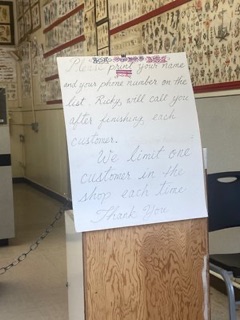 Please print your name
and your phone number on the
list. Ricky, will call you
after finishing each
customer.
We limit one
customer in the
shop each time
Thank You